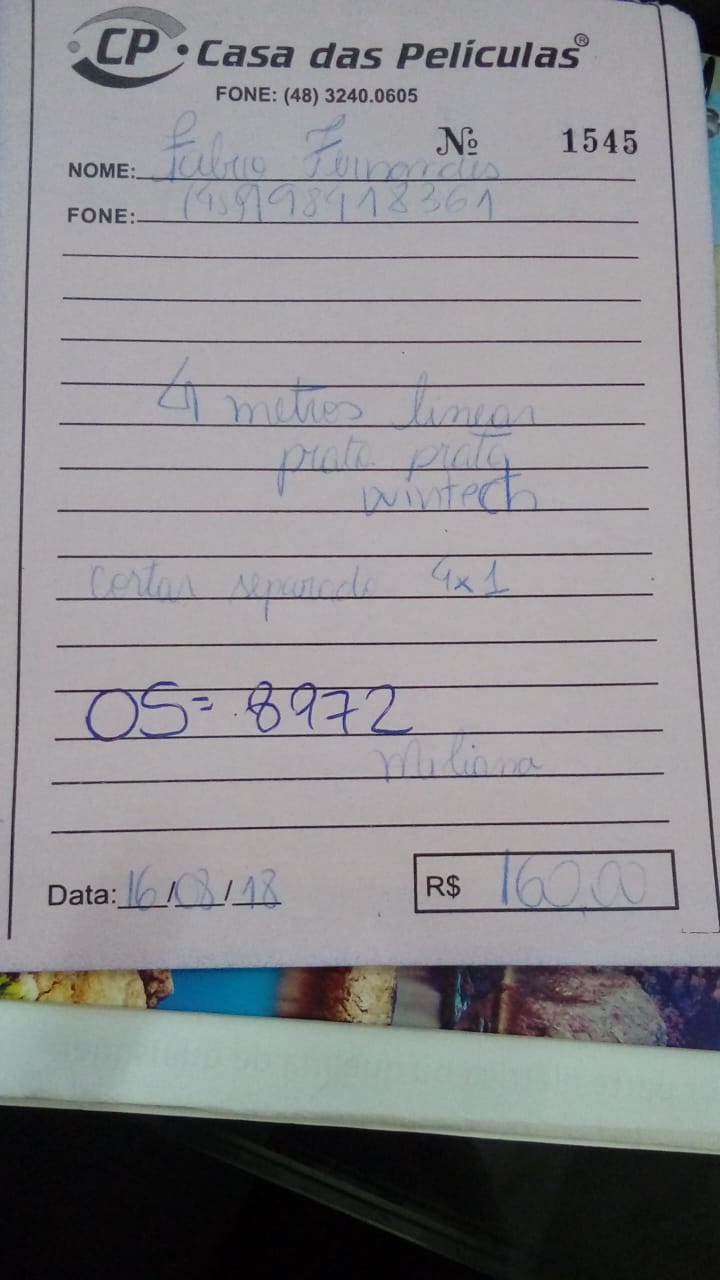 CP • Casa das Películas®
FONE: (48) 3240.0605
Nº 1545
NOME: Fabrio Fernandes
FONE: (48)998418361
4 metros linear
prata prata
wintech
cortar separado 4x1
OS= 8972
Data: 16/08/18
R$ 160,00